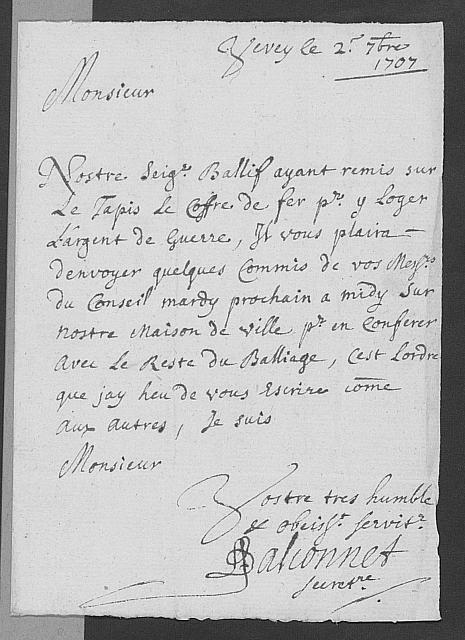 Vevey le 2r 7bre
1707
Monsieur
Nostre Seigr. Ballif ayant remis sur
Le Tapis Le Coffre de fer pr. y Loger
L'argent de Guerre, Il vous plaira
d'envoyer quelques Commis de vos Messrs.
du Conseil mardy prochain a midy sur
nostre Maison de ville pr. en Conferer
avec Le Reste du Balliage, C'est L'ordre
que j'ay heu de vous Escrire come
aux autres, Je suis
Monsieur
Vostre tres humble
& obeisst. servitr.
Balconnet
secretre